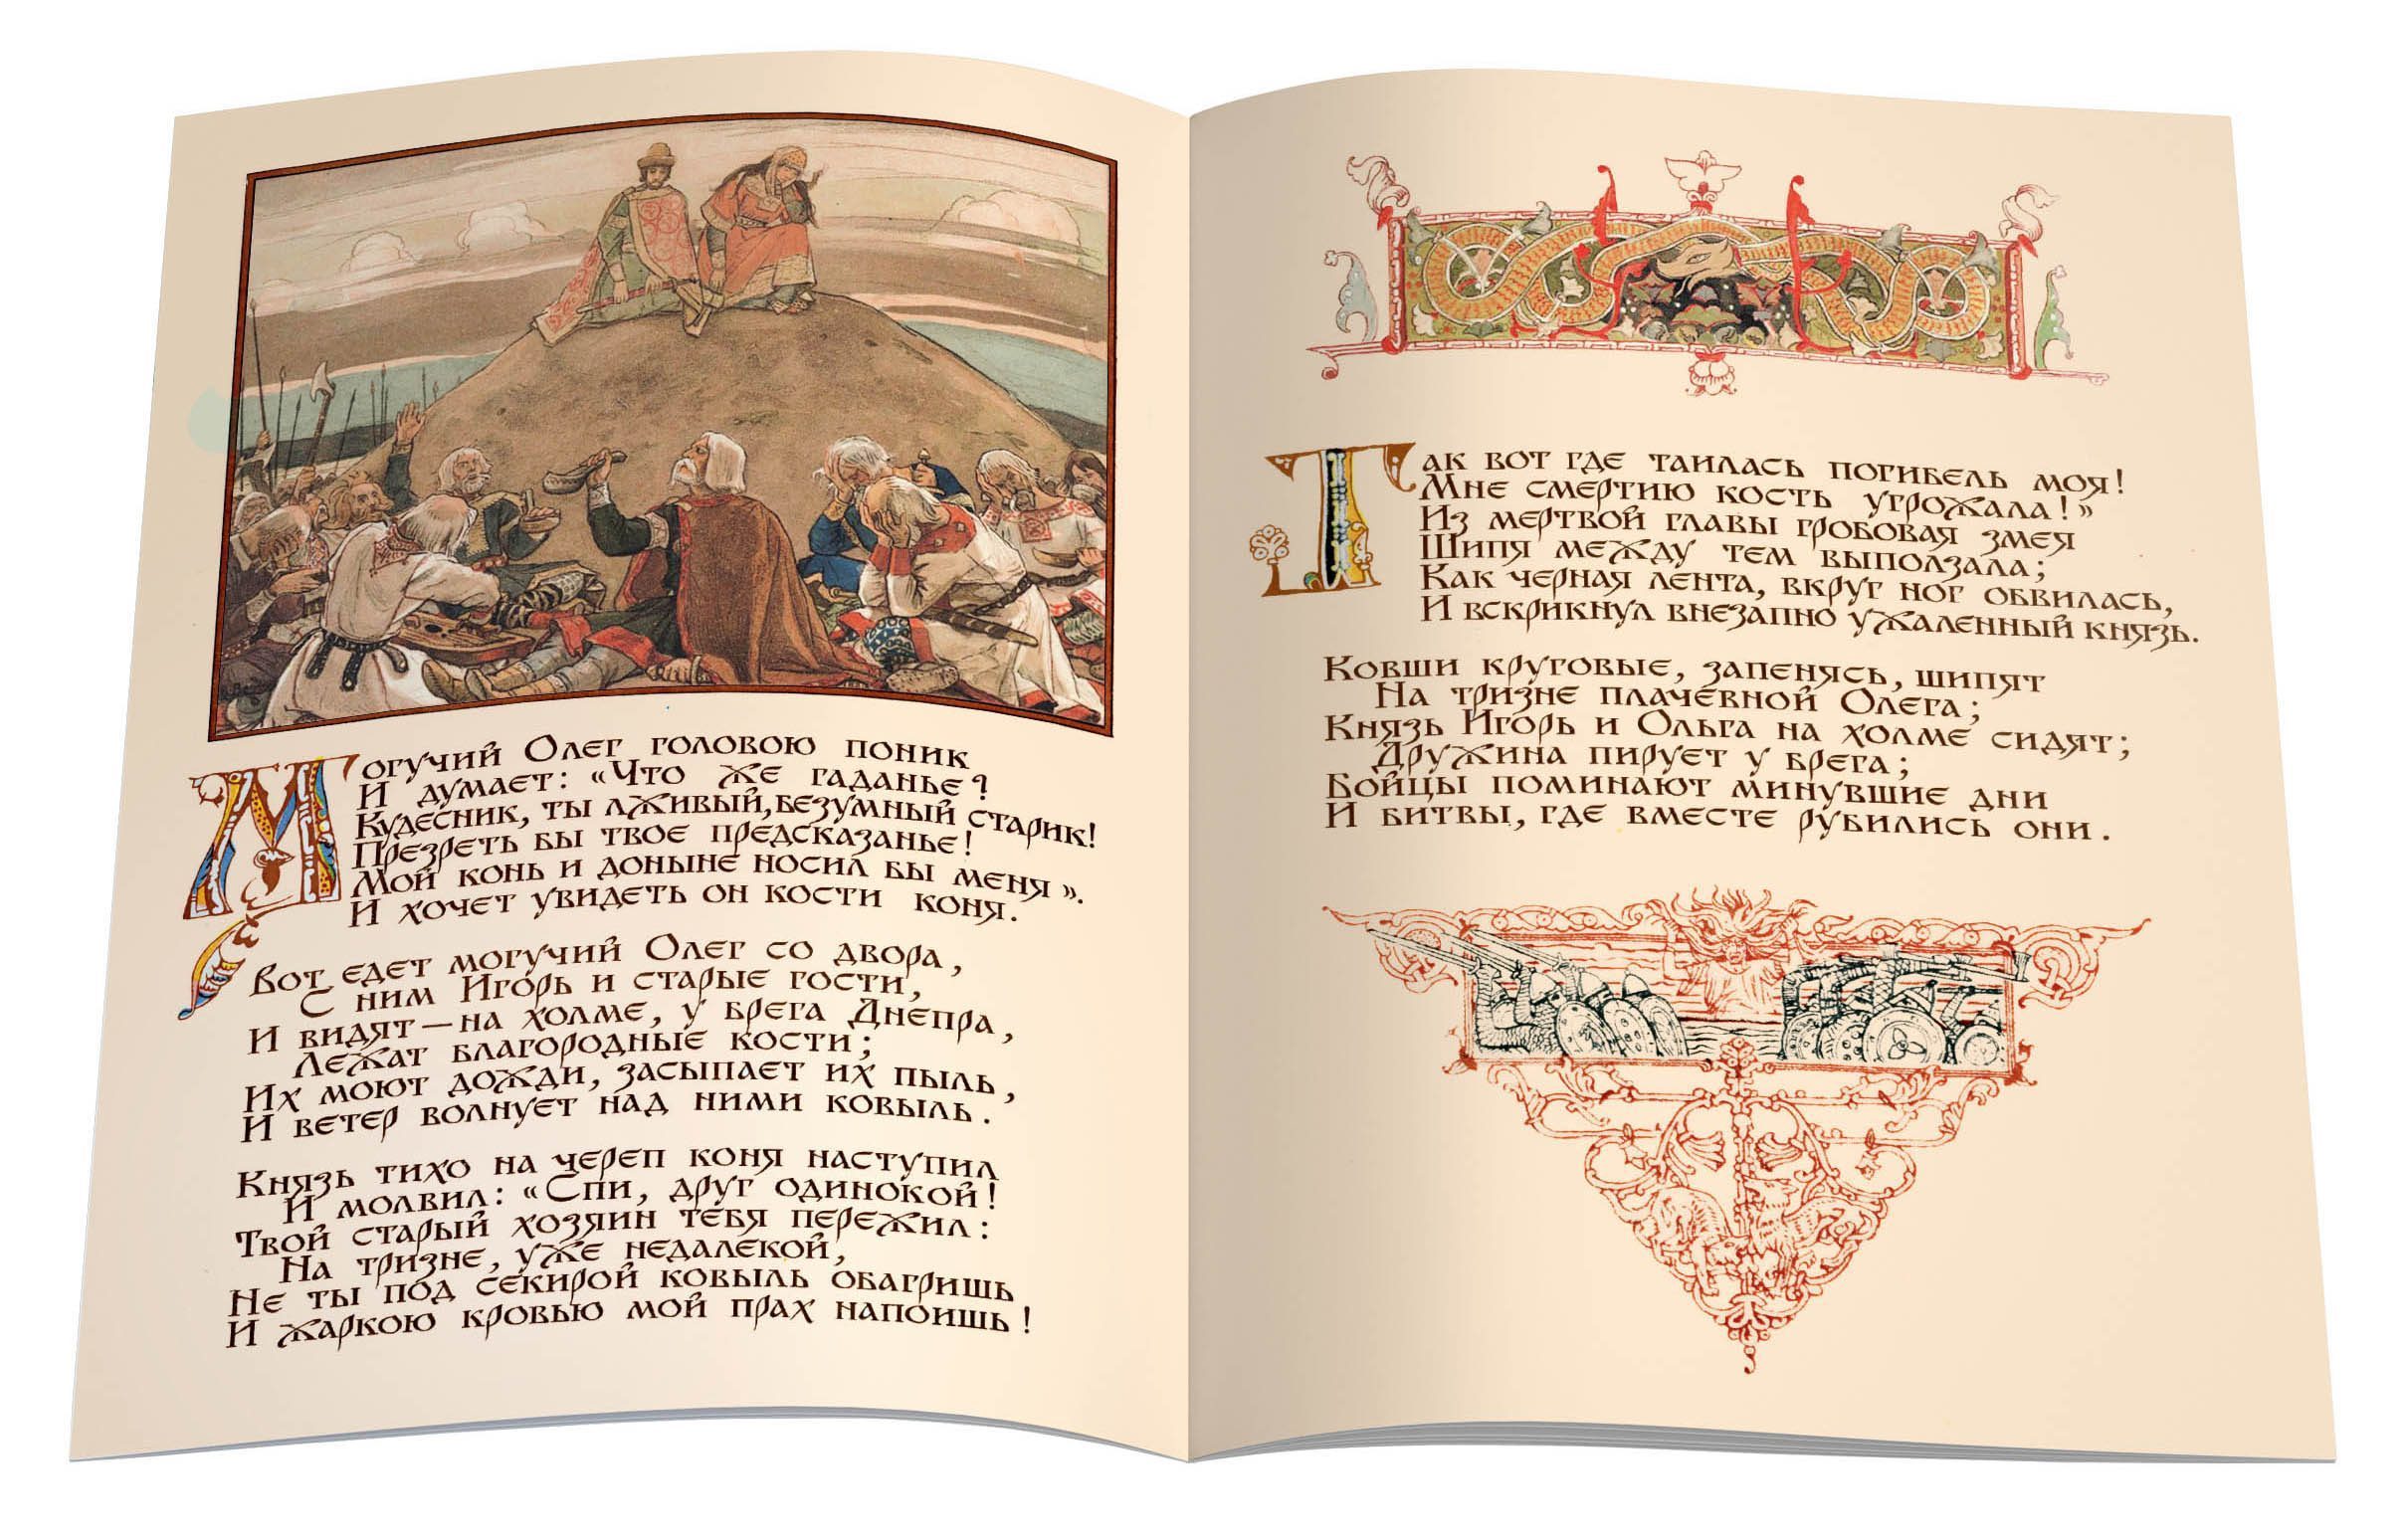 Могучий Олег головою поник
И думает: «Что же гаданье?
Кудесник, ты лживый, безумный старик!
Презреть бы твое предсказанье!
Мой конь и доныне носил бы меня».
И хочет увидеть он кости коня.
Вот едет могучий Олег со двора,
С ним Игорь и старые гости,
И видят — на холме, у брега Днепра,
Лежат благородные кости;
Их моют дожди, засыпает их пыль,
И ветер волнует над ними ковыль.
Князь тихо на череп коня наступил
И молвил: «Спи, друг одинокой!
Твой старый хозяин тебя пережил:
На тризне, уже недалекой,
Не ты под секирой ковыль обагришь
И жаркою кровью мой прах напоишь!
Так вот где таилась погибель моя!
Мне смертию кость угрожала!»
Из мертвой главы гробовая змея
Шипя между тем выползала;
Как черная лента, вкруг ног обвилась,
И вскрикнул внезапно ужаленный князь.
Ковши круговые, запенясь, шипят
На тризне плачевной Олега;
Князь Игорь и Ольга на холме сидят;
Дружина пирует у брега;
Бойцы поминают минувшие дни
И битвы, где вместе рубились они.